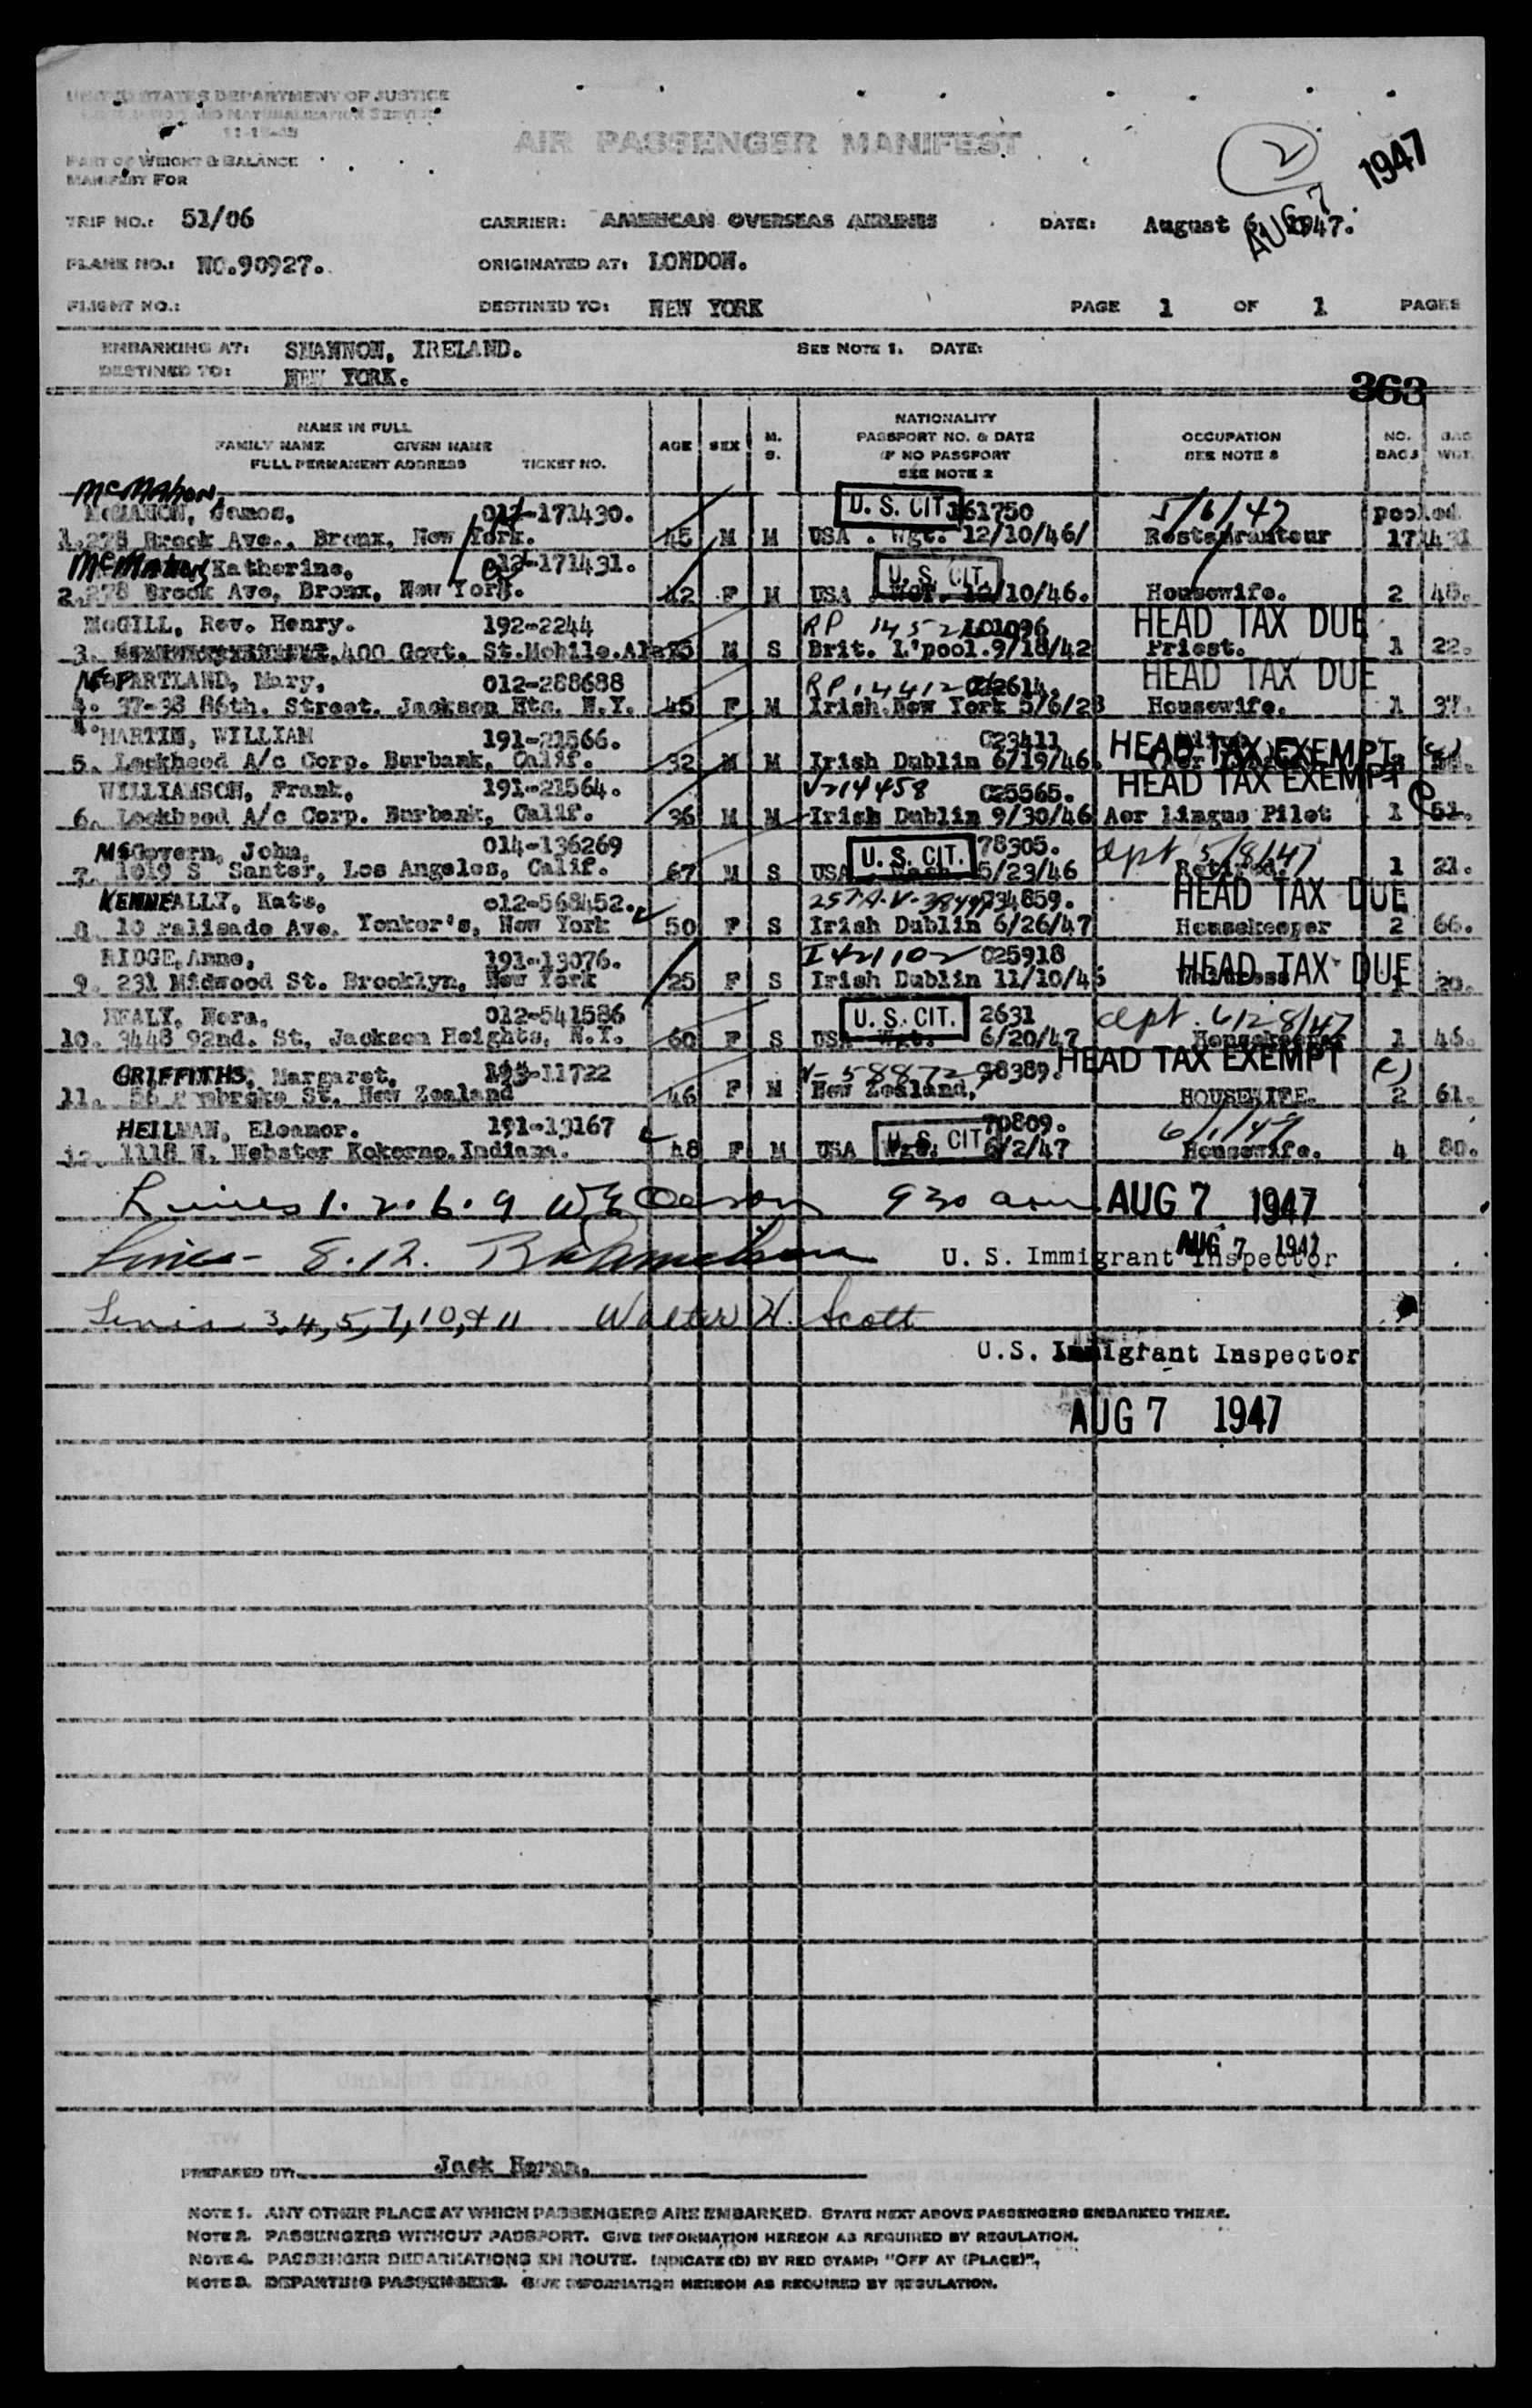 UNITED STATES DEPARTMENT OF JUSTICE
IMMIGRATION AND NATURALIZATION SERVICE
AIR PASSENGER MANIFEST
2
AUG 7 1947
PART OF WEIGHT & BALANCE
MANIFEST FOR
TRIP NO.: 51/06 CARRIER: AMERICAN OVERSEAS AIRLINES DATE: August 6, 1947.
PLANE NO.: NC.90927. ORIGINATED AT: LONDON.
FLIGHT NO.: DESTINED TO: NEW YORK PAGE 1 OF 1 PAGES
EMBARKING AT: SHANNON, IRELAND. SEE NOTE 1. DATE:
DESTINED TO: NEW YORK.
363
NAME IN FULL
FAMILY NAME GIVEN NAME
FULL PERMANENT ADDRESS TICKET NO.
AGE SEX M. S.
NATIONALITY
PASSPORT NO. & DATE
IF NO PASSPORT
SEE NOTE 2
OCCUPATION
SEE NOTE 3
NO. BAGS BAG WGT.
McMahon,
McMAHON, James, 012-171430. U. S. CIT. 161750 5/6/47 pooled
1. 278 Brook Ave., Bronx, New York. 45 M M USA . Wgt. 12/10/46/ Restauranteur 171431
McMahon, Katherine, 012-171431. U. S. CIT.
2. 278 Brook Ave, Bronx, New York. 42 F M USA Wgt. 12/10/46. Housewife. 2 48.
McGILL, Rev. Henry. 192-2244 RP 1452 101096 HEAD TAX DUE
3. 400 Govt. St. Mobile. Ala. M S Brit. L'pool. 9/18/42 Priest. 1 22.
McPARTLAND, Mary, 012-288688 RP 14412 HEAD TAX DUE
4. 37-38 86th. Street. Jackson Hts. N.Y. 45 F M Irish. New York 5/6/28 Housewife. 1 37.
MARTIN, WILLIAM 191-21566. 023411 HEAD TAX EXEMPT
5. Lockheed A/c Corp. Burbank, Calif. 32 M M Irish Dublin 6/19/46.
WILLIAMSON, Frank, 191-21564. V214458 025565. HEAD TAX EXEMPT
6. Lockheed A/c Corp. Burbank, Calif. 36 M M Irish Dublin 9/30/46 Aer Lingus Pilot 1 51.
McGovern, John, 014-136269 U. S. CIT. 78305. dept 5/8/47
7. 1019 S Santer, Los Angeles, Calif. 67 M S USA Wash 5/23/46 Retired. 1 21.
KENNEALLY, Kate, 012-568452. 034859. HEAD TAX DUE
8. 10 Palisade Ave. Yonker's, New York 50 F S Irish Dublin 6/26/47 Housekeeper 2 66.
RIDGE, Anne, 191-13076. I421102 025918 HEAD TAX DUE
9. 231 Midwood St. Brooklyn, New York 25 F S Irish Dublin 11/10/46 20.
HEALY, Nora, 012-541586 U. S. CIT. 2631 dept. 6/28/47
10. 3448 92nd. St, Jackson Heights, N.Y. 60 F S USA Wgt. 6/20/47 Housekeeper 1 46.
GRIFFITHS, Margaret, 11722 V-58872 38389. HEAD TAX EXEMPT
11. 56 Pembroke St. New Zealand 46 F M New Zealand, HOUSEWIFE. 2 61.
HEILMAN, Eleanor. 191-13167 U. S. CIT. 70809. 6/1/47
12. 1118 W. Webster Kokormo. Indiana. 48 F M USA Wgt. 6/2/47 Housewife. 4 80.
Lines 1. 2. 6. 9 930 am AUG 7 1947
Lines - 8. 12. U. S. Immigrant Inspector AUG 7 1947
Lines 3, 4, 5, 7, 10, & 11 Walter H. Scott
U.S. Immigrant Inspector
AUG 7 1947
PREPARED BY: Jack Horan.
NOTE 1. ANY OTHER PLACE AT WHICH PASSENGERS ARE EMBARKED. STATE NEXT ABOVE PASSENGERS EMBARKED THERE.
NOTE 2. PASSENGERS WITHOUT PASSPORT. GIVE INFORMATION HEREON AS REQUIRED BY REGULATION.
NOTE 4. PASSENGER DEBARKATIONS EN ROUTE. INDICATE (D) BY RED STAMP: "OFF AT (PLACE)".
NOTE 3. DEPARTING PASSENGERS. GIVE INFORMATION HEREON AS REQUIRED BY REGULATION.